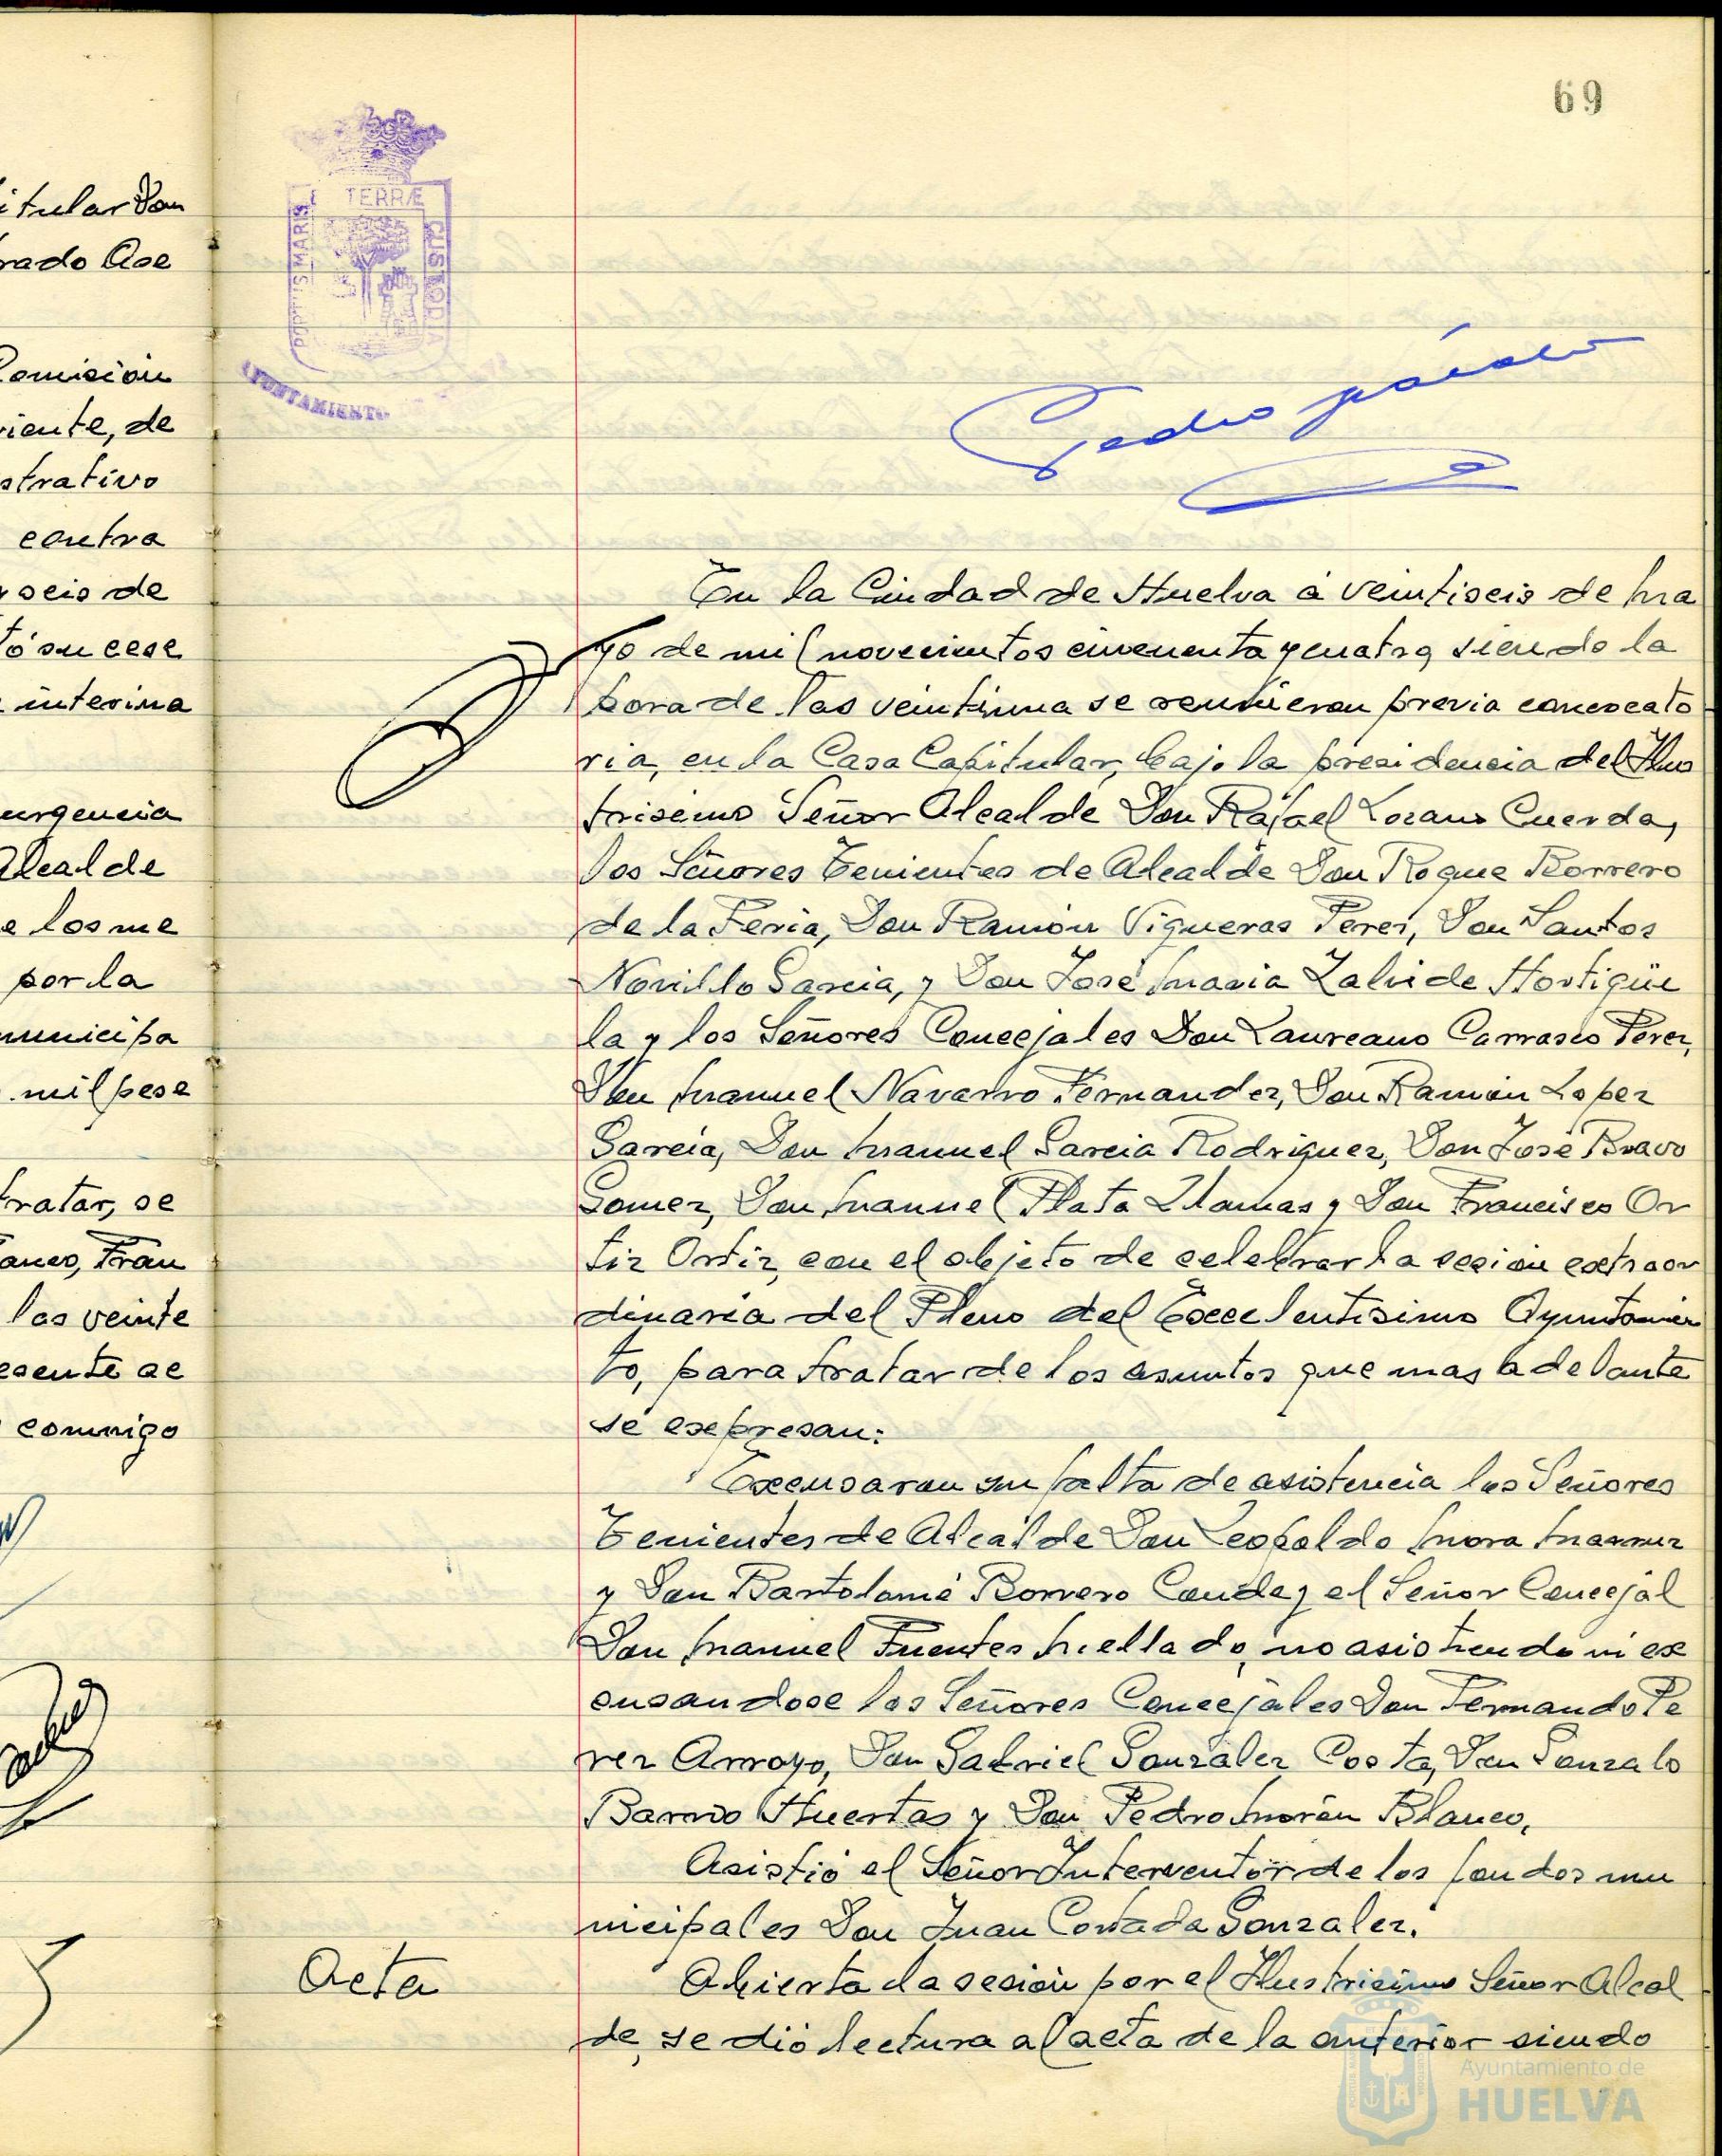 69
itular Don
rado Ase
Comisión
viente, de
strativo
contra
y seis de
tó su cese
interina
urgencia
Alcalde
e los me
por la
municipa
mil pese
tratar, se
anco, Fran
las veinte
esente ac
conmigo
TERRÆ
PORTUS MARIS
CUSTODIA
AYUNTAMIENTO
En la Ciudad de Huelva a veintiseis de Ma
yo de mil novecientos cincuenta y cuatro, siendo la
hora de las veintiuna se reunieron previa convocato
ria, en la Casa Capitular, bajo la presidencia del Ilus
trisimo Señor Alcalde Don Rafael Lozano Cuerda,
los Señores Tenientes de Alcalde Don Roque Borrero
de la Feria, Don Ramón Vigueras Perez, Don Santos
Novillo Garcia, y Don José Maria Zalvide Hortigüe
la y los Señores Concejales Don Laureano Carrasco Perez,
Don Manuel Navarro Fernandez, Don Ramón Lopez
Garcia, Don Manuel Garcia Rodriguez, Don José Bravo
Gomez, Don Manuel Plata Llamas y Don Francisco Or
tiz Ortiz, con el objeto de celebrar la sesión extraor
dinaria del Pleno del Excelentisimo Ayuntamien
to, para tratar de los asuntos que mas adelante
se expresan:
Excusaron su falta de asistencia los Señores
Tenientes de Alcalde Don Leopoldo Mora
y Don Bartolomé Borrero Conde y el Señor Concejal
Don Manuel Fuentes Mellado, no asistiendo ni ex
cusandose los Señores Concejales Don Fernando Pe
rez Arroyo, Don Gabriel Gonzalez Costa, Don Gonzalo
Barrio Huertas y Don Pedro Morán Blanco.
Asistió el Señor Interventor de los fondos mu
nicipales Don Juan Gonzalez.
Acta
Abierta la sesión por el Ilustrisimo Señor Alcal
de, se dió lectura al acta de la anterior siendo
Ayuntamiento de
HUELVA